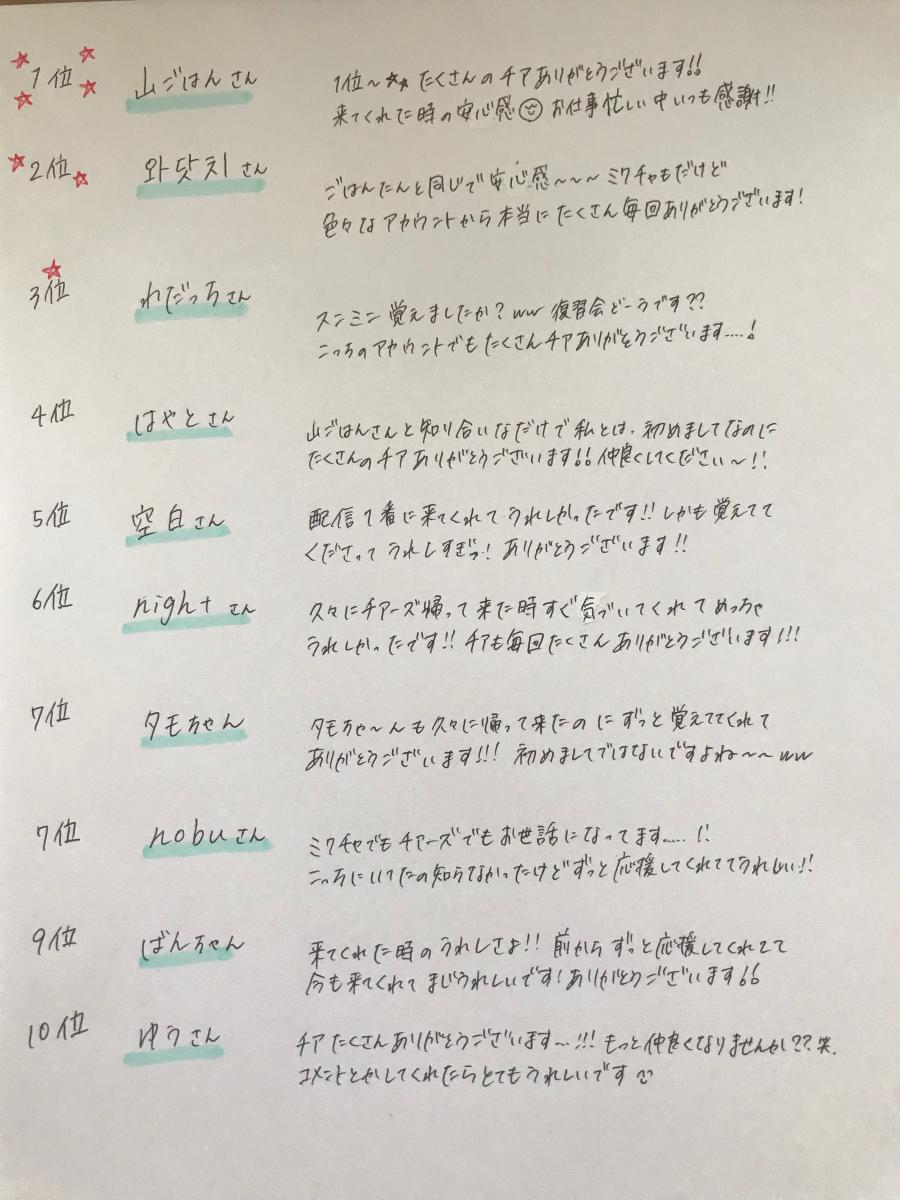 1位 山ごはんさん 1位～☆☆ たくさんのチアありがとうございます!!
来てくれた時の安心感 お仕事忙しい中いつも感謝!!
2位 와닷치さん ごはんたんと同じで安心感～～～ ミクチャもだけど
色々なアカウントから本当にたくさん毎回ありがとうございます!
3位 れだっちさん スンミン覚えましたか? ww 復習会どーうです??
こっちのアカウントでもたくさんチアありがとうございます....!
4位 はやとさん 山ごはんさんと知り合いなだけで私とは、初めましてなのに
たくさんのチアありがとうございます!! 仲良くしてください～!!
5位 空白さん 配信1番に来てくれてうれしかったです!! しかも覚えてて
くださってうれしすぎっ! ありがとうございます!!
6位 nightさん 久々にチアーズ帰って来た時すぐ気づいてくれてめっちゃ
うれしかったです!! チアも毎回たくさんありがとうございます!!!
7位 タモちゃん タモちゃ～んも久々に帰って来たのにずっと覚えててくれて
ありがとうございます!!! 初めましてではないですよね～～ww
7位 nobuさん ミクチャでもチアーズでもお世話になってます.....!!
こっちにいてたの知らなかったけどずっと応援してくれててうれしい!!
9位 ばんちゃん 来てくれた時のうれしさよ!! 前からずっと応援してくれてて
今も来てくれてまじうれしいです! ありがとうございます!!
10位 ゆうさん チアたくさんありがとうございます...!!! もっと仲良くなりませんか?? 笑.
コメントとかしてくれたらとてもうれしいです